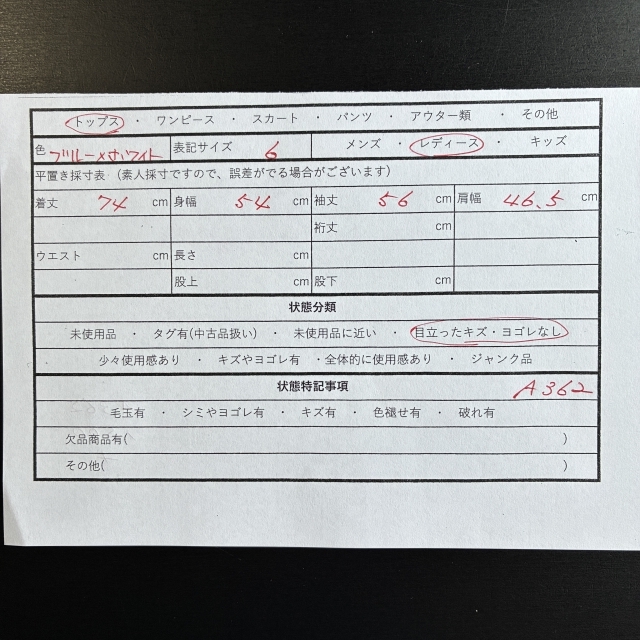 トップス ・ ワンピース ・ スカート ・ パンツ ・ アウター類 ・ その他
色 ブルー×ホワイト 表記サイズ 6 メンズ ・ レディース ・ キッズ
平置き採寸表 (素人採寸ですので、誤差がでる場合がございます)
着丈 74 cm 身幅 54 cm 袖丈 56 cm 肩幅 46.5 cm
裄丈
ウエスト cm 長さ cm cm
股上 cm 股下 cm
状態分類
未使用品 ・ タグ有(中古品扱い) ・ 未使用品に近い ・ 目立ったキズ・ヨゴレなし
少々使用感あり ・ キズやヨゴレ有 ・全体的に使用感あり ・ ジャンク品
状態特記事項 A362
毛玉有 ・ シミやヨゴレ有 ・ キズ有 ・ 色褪せ有 ・ 破れ有
欠品商品有( )
その他( )